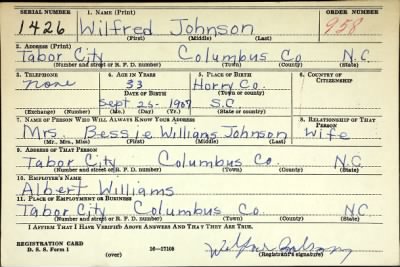 SERIAL NUMBER 1. NAME (Print) ORDER NUMBER
1426 Wilfred Johnson 958
(First) (Middle) (Last)
2. ADDRESS (Print)
Tabor City Columbus Co N.C.
(Number and street or R. F. D. number) (Town) (County) (State)
3. TELEPHONE 4. AGE IN YEARS 5. PLACE OF BIRTH 6. COUNTRY OF CITIZENSHIP
none 33 Horry Co.
DATE OF BIRTH (Town or county)
Sept 25 - 1907 S.C.
(Exchange) (Number) (Mo.) (Day) (Yr.) (State or country)
7. NAME OF PERSON WHO WILL ALWAYS KNOW YOUR ADDRESS 8. RELATIONSHIP OF THAT PERSON
Mrs. Bessie Williams Johnson Wife
(Mr., Mrs., Miss) (First) (Middle) (Last)
9. ADDRESS OF THAT PERSON
Tabor City Columbus Co. N.C.
(Number and street or R. F. D. number) (Town) (County) (State)
10. EMPLOYER'S NAME
Albert Williams
11. PLACE OF EMPLOYMENT OR BUSINESS
Tabor City Columbus Co. N.C.
(Number and street or R. F. D. number) (Town) (County) (State)
I AFFIRM THAT I HAVE VERIFIED ABOVE ANSWERS AND THAT THEY ARE TRUE.
REGISTRATION CARD
D. S. S. Form 1 (over) 16—17105
(Registrant's signature)